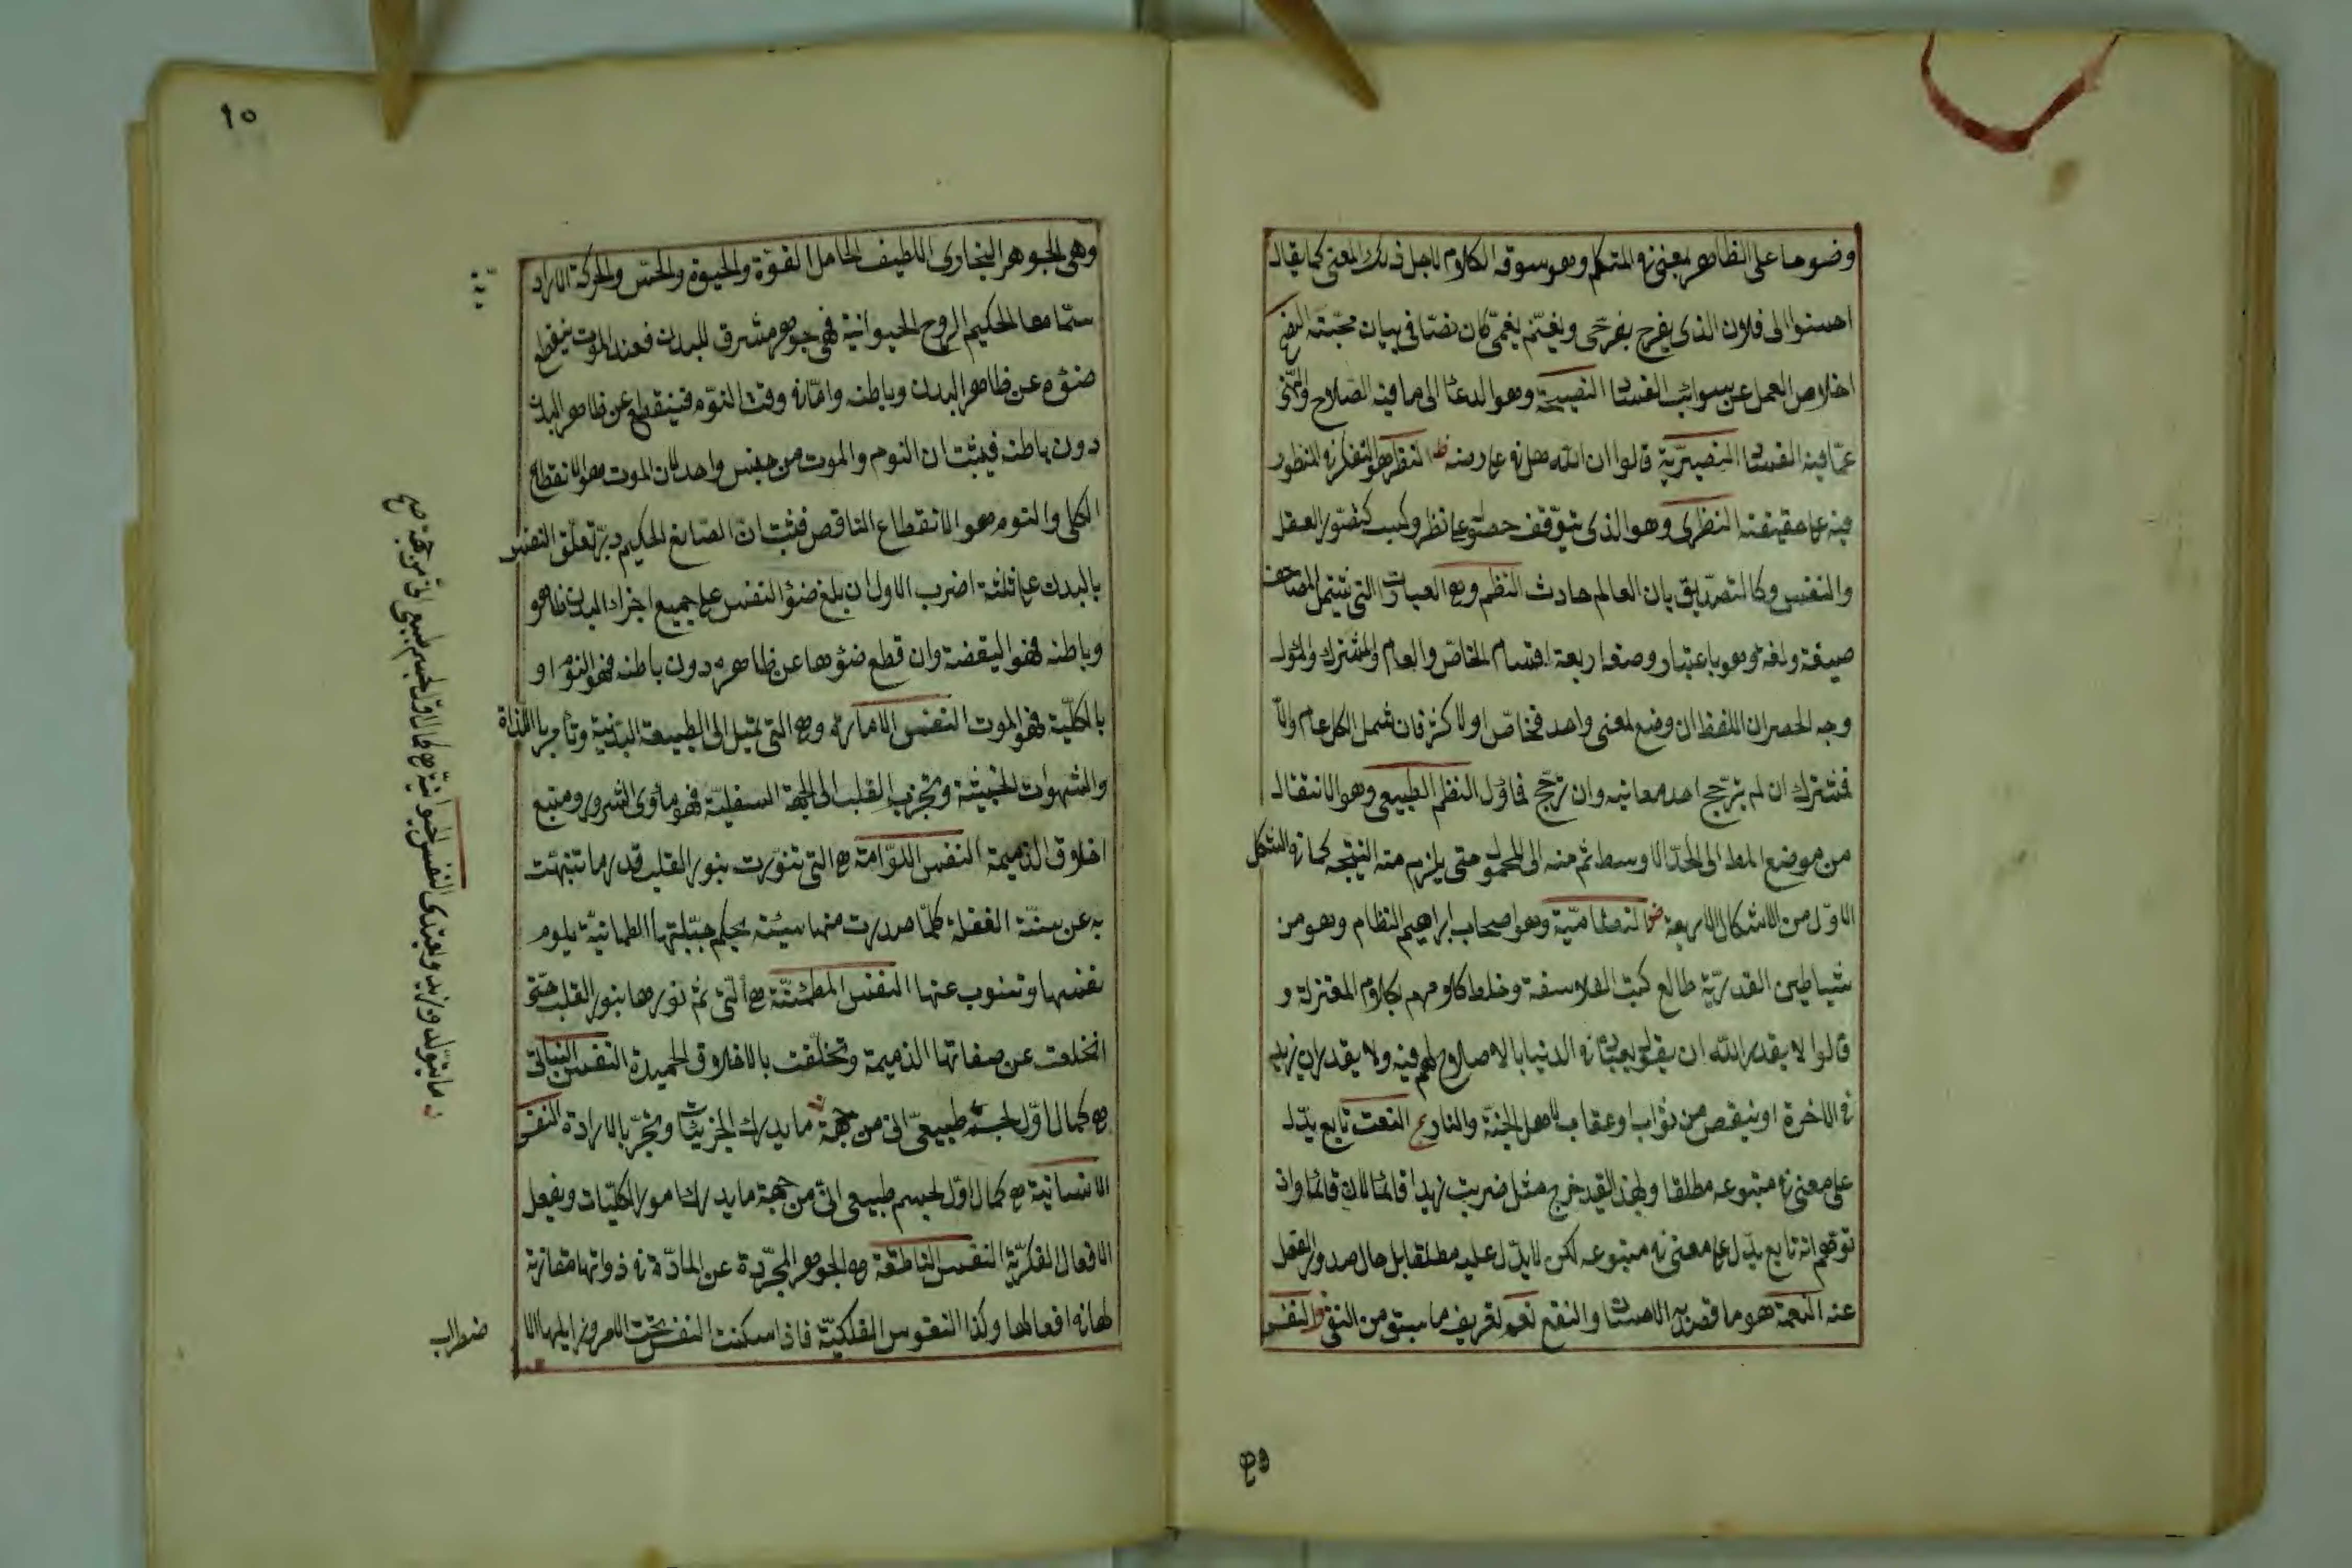 وضوحا على الظاهر لمعنى في المتكلم وهو سوق الكلام لاجل ذلك المعنى كما يقال
احسنوا الى فلان الذى يفرح بفرحى ويغتم بغمى كان نصا فى بيان محبته النصح
اخلاص العمل عن شوائب الفساد النصيحة وهو الدعا الى ما فيه الصلاح والنهى
عما فيه الفساد النصيرية قالوا ان الله حل في على رضه ظ النظر هو التفكر في المنظور
فيه على حقيقته النظرى وهو الذى يتوقف حصوله على نظر وكسب كتصور العقل
والنفس وكالتصديق بان العالم حادث النظم وهى العبارات التى تشتمل المصاحف
صيغة ولغة وهو باعتبار وصفه اربعة اقسام الخاص والعام والمشترك والمؤول
وجه الحصر ان اللفظ ان وضع لمعنى واحد فخاص او لاكثر فان شمل الكل عام والا
فمشترك ان لم يترجح احد معانيه وان ترجح فماؤل النظم الطبيعى وهو الانتقال
من موضع المط الى الحد الاوسط ثم منه الى المحمول حتى يلزم منه النتيجه كما في الشكل
الاول من الاشكال الاربعة النظامية وهو اصحاب ابراهيم النظام وهو من
شياطين القدرية طالع كتب الفلاسفة وخلط كلامهم بكلام المعتزلة و
قالوا لا يقدر الله ان يفعل بعباده في الدنيا بالا صلاح لهم فيه ولا يقدر ان يزيد
في الاخرة او ينقص من ثواب وعقاب لاهل الجنة والنار ع النعت تابع يدل
على معنى في متبوعه مطلقا وبهذا القيد خرج مثل ضربت زيدا قائما لان قائما وان
توهم انه تابع يدل على معنى في متبوعه لكن لا يدل عليه مطلقا بل حال صدور الفعل
عنه النعمة هو ما قصد به الاحسان والنفع نعم لتقرير ما سبق من النفى ف النفس
١٥
وهى الجوهر البخارى اللطيف الحامل القوة والحيوة والحس والحركة الاراد
سماها الحكيم الروح الحيوانية فهى جوهر مشرق للبدن فعند الموت ينقطع
ضوءه عن ظاهر البدن وباطنه واما في وقت النوم فينقطع عن ظاهر البدن
دون باطنه فيثبت ان النوم والموت من جنس واحد لان الموت هو الانقطاع
الكلى والنوم هو الانقطاع الناقص فثبت ان الصانع الحكيم دبر تعلق النفس
بالبدن على ثلثة اضرب الاول ان بلغ ضوء النفس على جميع اجزاء البدن ظاهره
وباطنه فهو اليقضة وان قطع ضوءها عن ظاهره دون باطنه فهو النوم او
بالكلية فهو الموت النفس الامارة وهى التى تميل الى الطبيعة البدنية وتأمر بالذات
والشهوات الخبيثة وتجذب القلب الى الجهة السفلية فهو مأوى الشرور ومنبع
اخلاق الذميمة النفس اللوامة هى التى تنورت بنور القلب قدر ما تنبهت
به عن سنة الغفلة كلما صدرت منها سيئة بحكم جبلتها الظلمانية يلوم
نفسها وتتوب عنها النفس المطمئنة هى التى تم نورها بنور القلب حتى
انخلعت عن صفاتها الذميمة وتخلقت بالاخلاق الحميدة النفس النباتى
هى كمال اول لجسم طبيعى الى من جهة ما يدرك الجزئيات ويتحرك بالارادة النفس
الانسانية هى كمال اول لجسم طبيعى الى من جهة ما يدرك امور الكليات ويفعل
الافعال الفكرية النفس الناطقة هى الجوهر المجردة عن المادة في ذواتها مقارنة
لها في افعالها وكذا النفوس الفلكية فاذا سكنت النفس تحت الامر وزايلها الا
ضطراب
ما يتولد ويزيد ويغتذى النفس الحيوانية هى كمال اول لجسم طبيعى الى من جهة صح